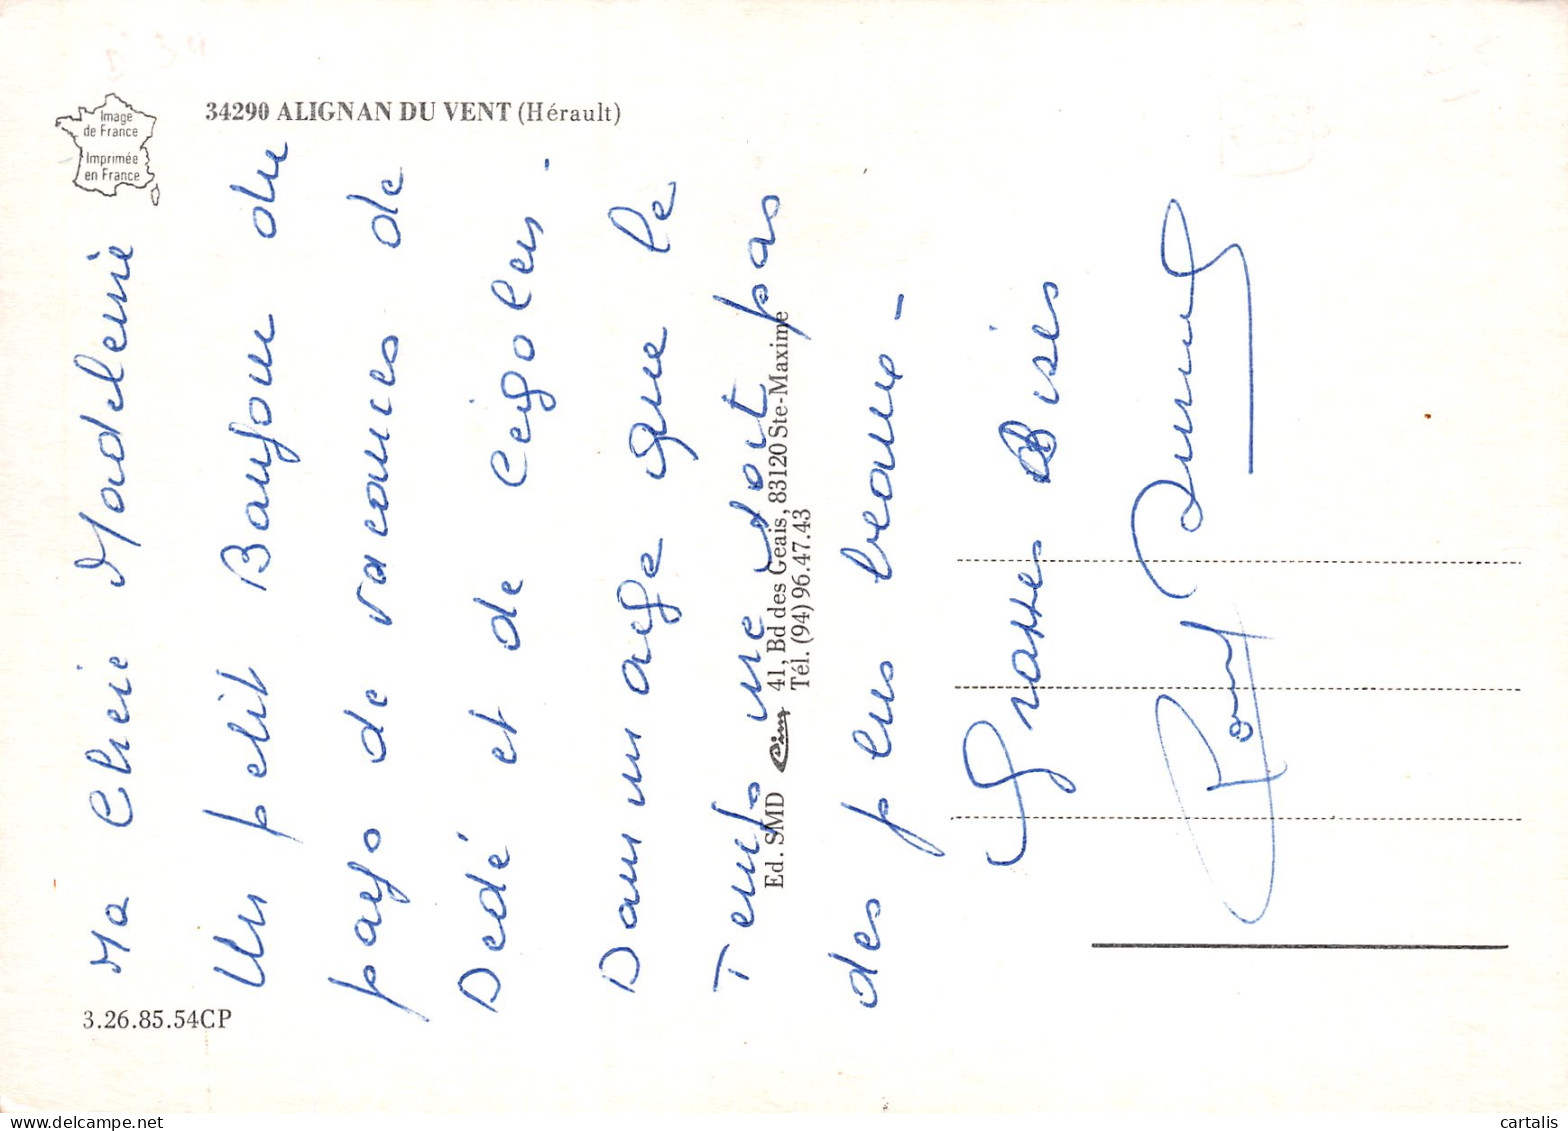 Image
de France
Imprimée
en France
34290 ALIGNAN DU VENT (Hérault)
Ma Cherie Madelenie
Un petit Bonjour du
pays de vacances de
Dedé et de Cigolen.
Dommage que le
Temps ne soit pas
des plus beaux -
Grosses Bises
Ed. SMD Cim 41, Bd des Geais, 83120 Ste-Maxime
Tél. (94) 96.47.43
3.26.85.54CP
cartalis